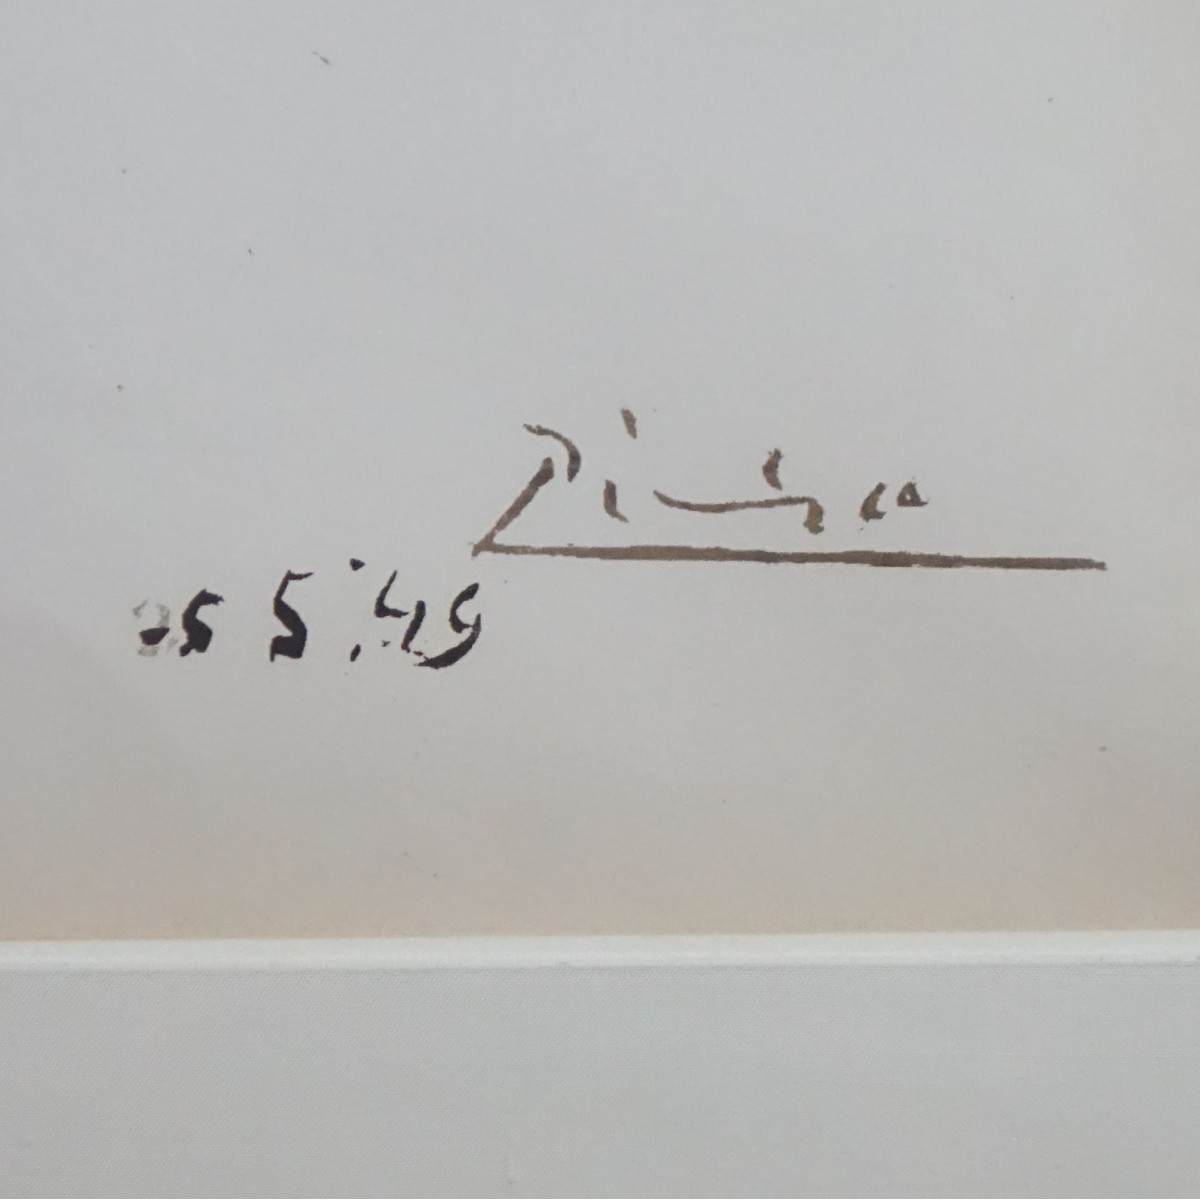 Picasso
5 5.49